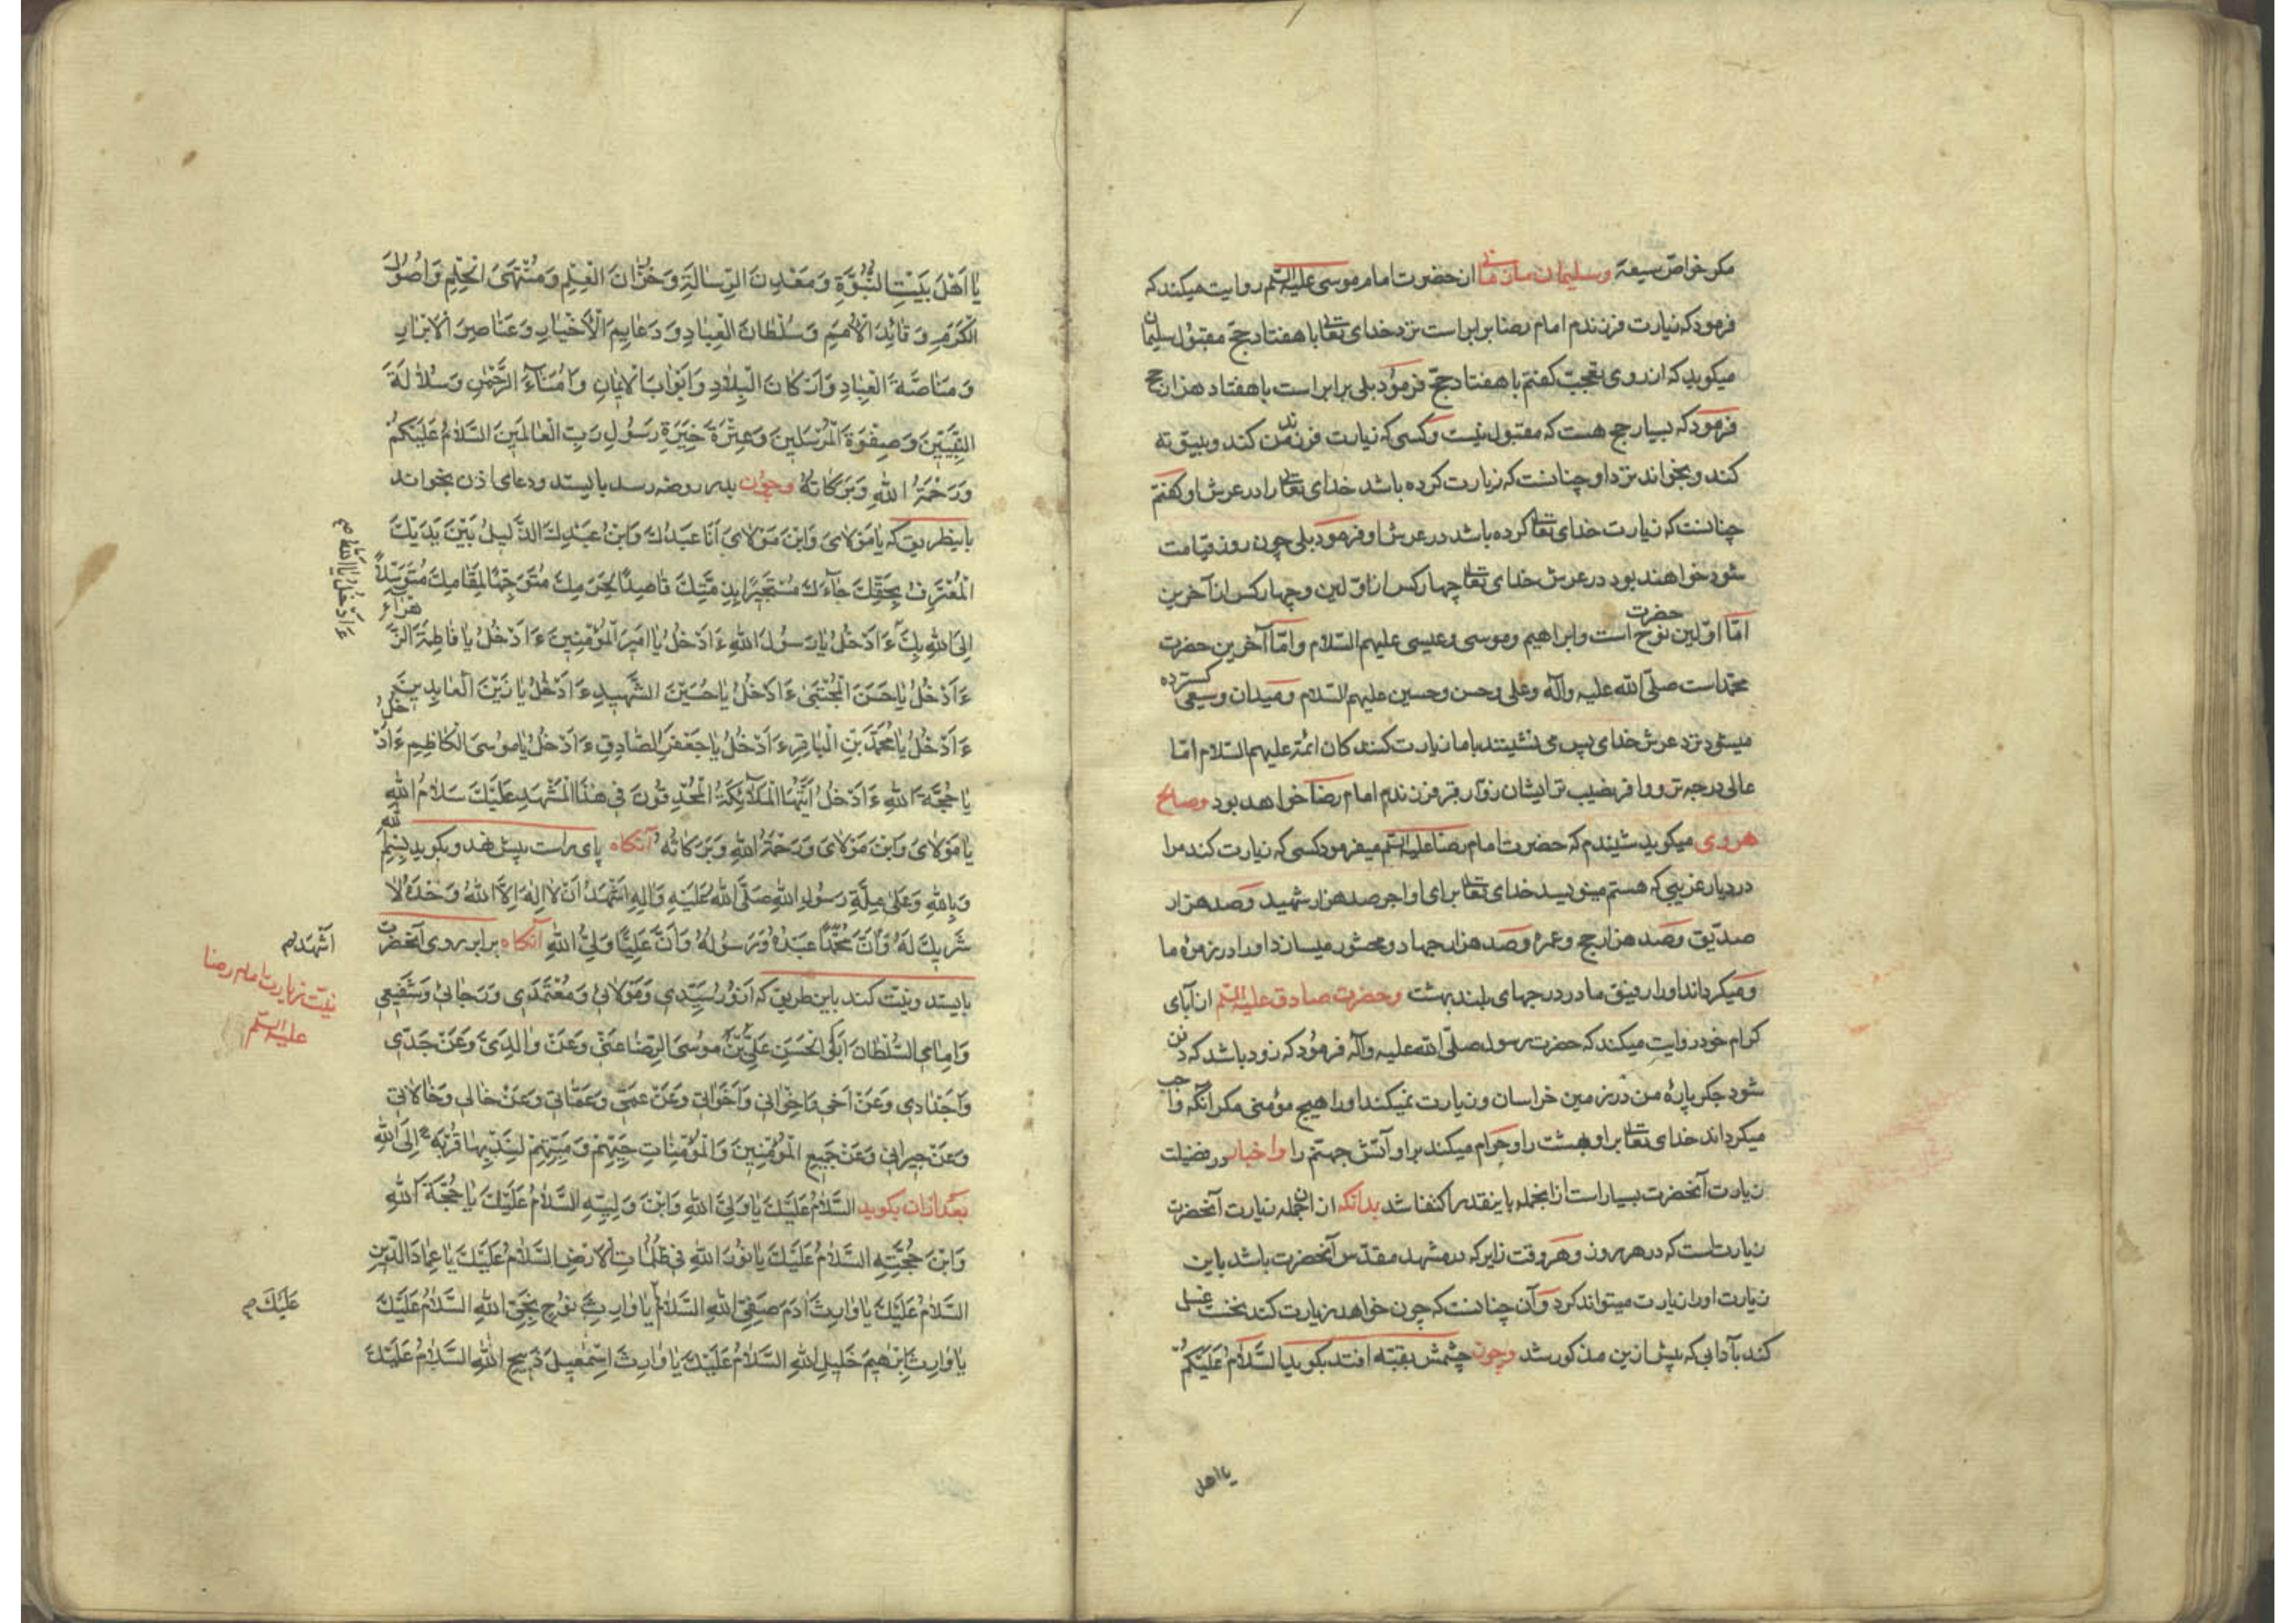 مکر خواصّ شیعه وسلیمان از حضرت امام موسی علیه السّلم روایت میکند که
فرمود که زیارت فرزندم امام رضا برابر است نزد خدای تعالی با هفتاد حجّ مقبول سلیمان
میکوید که از روی تعجب کفتم با هفتاد حجّ فرمود بلی برابر است با هفتاد هزار حج
فرمود که بسیار حج هست که مقبول نیست وکسی که زیارت فرزند من کند و بیتوته
کند و بخواند نزد او چنانست که زیارت کرده باشد خدای تعالی را در عرش او کفتم
چنانست که زیارت خدای تعالی کرده باشد در عرش او فرمود بلی چون روز قیامت
شود خواهند بود در عرش خدای تعالی چهار کس از اوّلین و چهار کس از آخرین
امّا اوّلین حضرت نوح است وابراهیم وموسی وعیسی علیهم السّلام وامّا آخرین حضرت
محمّد است صلّی الله علیه وآله وعلی وحسن وحسین علیهم السّلام ومیدان وسیعی کسترده
میشود نزد عرش خدای پس می نشینند با ما زیارت کنندکان ائمّه علیهم السّلام امّا
عالی درجه تر و وافر نصیب تر ایشان زوّار قبر فرزندم امام رضا خواهد بود وصالح
هروی میکوید شنیدم که حضرت امام رضا علیه السّلم میفرمود کسی که زیارت کند مرا
در دیار غریبی که هستم مینویسد خدای تعالی برای او اجر صد هزار شهید وصد هزار
صدّیق وصد هزار حج وعمره وصد هزار جهاد ومحشور میسازد او را در زمره ما
ومیکرداند او را رفیق ما در درجهای بلند بهشت وحضرت صادق علیه السّلم از آبای
کرام خود روایت میکند که حضرت رسول صلّی الله علیه وآله فرمود که زود باشد که دفن
شود جکر پارهٔ من در زمین خراسان وزیارت نمیکند او را هیچ مؤمنی مکر آنکه واجب
میکرداند خدای تعالی براو بهشت را وحرام میکند براو آتش جهنّم را واخبار در فضیلت
زیارت آنحضرت بسیار است از انجمله باینقدر اکتفا شد بدانکه از انجمله زیارت آنحضرت
زیارتاست که در هر روز وهر وقت زایر که در مشهد مقدّس آنحضرت باشد باین
زیارت او را زیارت میتواند کرد وآن چنانست که چون خواهد زیارت کند نخست غسل
کند بآدابی که پیش ازین مذکور شد وچون چشمش بقبّه افتد بکوید السَّلامُ عَلَیْکُمْ
یا اهل
یا اَهْلَ بَیْتِ النُّبُوَّةِ وَمَعْدِنَ الرِّسالَةِ وَخُزّانَ الْعِلْمِ وَمُنْتَهَی الْحِلْمِ وَاُصُولَ
الْکَرَمِ وَقائِدَ الْاُمَمِ وَسُلْطانَ الْعِبادِ وَدَعایِمَ الْاَخْیارِ وَعَناصِرَ الْاَبْرارِ
وَ الْعِبادِ وَاَرْکانَ الْبِلادِ وَاَبْوابَ الْایمانِ وَاُمَناءَ الرَّحْمٰنِ وَسُلالَةَ
النَّبِیّینَ وَصِفْوَةَ الْمُرْسَلینَ وَعِتْرَةَ خِیَرَةِ رَسُولِ رَبِّ الْعالَمینَ السَّلامُ عَلَیْکُمْ
وَرَحْمَةُ اللهِ وَبَرَکاتُهُ وچون بدر روضه رسد بایستد ودعای اذن بخواند
باینطریق که یا مَوْلایَ وَابْنَ مَوْلایَ اَنَا عَبْدُكَ وَابْنُ عَبْدِكَ الذَّلیلُ بَیْنَ یَدَیْكَ
الْمُعْتَرِفُ بِحَقِّكَ جاءَكَ مُسْتَجیرًا بِذِمَّتِكَ قاصِدًا لِحَرَمِكَ مُتَوَجِّهًا لِمَقامِكَ مُتَوَسِّلاً
اِلَی اللهِ بِكَ ءَاَدْخُلُ یا رَسُولَ اللهِ ءَاَدْخُلُ یا اَمیرَ الْمُؤْمِنینَ ءَاَدْخُلُ یا فاطِمَةَ الزَّهْراءِ
ءَاَدْخُلُ یا حَسَنَ الْمُجْتَبی ءَاَدْخُلُ یا حُسَیْنَ الشَّهیدِ ءَاَدْخُلُ یا زَیْنَ الْعابِدینَ
ءَاَدْخُلُ یا مُحَمَّدَ بْنِ الْباقِرِ ءَاَدْخُلُ یا جَعْفَرِ الصّادِقِ ءَاَدْخُلُ یا مُوسَی الْکاظِمِ ءَاَدْخُلُ
یا حُجَّةَ اللهِ ءَاَدْخُلُ اَیَّتُهَا الْمَلائِکَةُ الْمُحْدِقُونَ فی هٰذَا الْمَشْهَدِ عَلَیْكَ سَلامُ اللهِ
یا مَوْلایَ وَابْنَ مَوْلایَ وَرَحْمَةُ اللهِ وَبَرَکاتُهُ آنکاه پای راست پیش نهد وبکوید بِسْمِ اللهِ
وَبِاللهِ وَعَلی مِلَّةِ رَسُولِ اللهِ صَلَّی اللهُ عَلَیْهِ وَالِهِ اَشْهَدُ اَنْ لا اِلٰهَ اِلاَّ اللهُ وَحْدَهُ لا
شَریكَ لَهُ وَاَنَّ مُحَمَّدًا عَبْدُهُ وَرَسُولُهُ وَاَنَّ عَلِیًّا وَلِیُّ اللهِ آنکاه برابر روی آنحضرت
بایستد ونیّت کند باین طریق که اَزُورُ سَیِّدی وَمَوْلائی وَمُعْتَمَدی وَرَجائی وَشَفیعی
وَاِمامِی السُّلْطانَ اَبِی الْحَسَنِ عَلِیِّ بْنِ مُوسَی الرِّضا عَنّی وَعَنْ والِدَیَّ وَعَنْ جَدّی
وَاَجْدادی وَعَنْ اَخی وَاِخْوانی وَاَخَواتی وَعَنْ عَمّی وَعَمّاتی وَعَنْ خالی وَخالاتی
وَعَنْ جیرانی وَعَنْ جَمیعِ الْمُؤْمِنینَ وَالْمُؤْمِناتِ حَیِّهِمْ وَمَیِّتِهِمْ لِنَدْبِها قُرْبَةً اِلَی اللهِ
بعد ازان بکوید السَّلامُ عَلَیْكَ یا وَلِیَّ اللهِ وَابْنَ وَلِیِّهِ السَّلامُ عَلَیْكَ یا حُجَّةَ اللهِ
وَابْنَ حُجَّتِهِ السَّلامُ عَلَیْكَ یا نُورَ اللهِ فی ظُلُماتِ الْاَرْضِ السَّلامُ عَلَیْكَ یا عِمادَ الدّینِ
السَّلامُ عَلَیْكَ یا وارِثَ ادَمَ صَفِیِّ اللهِ السَّلامُ یا وارِثَ نُوحٍ نَجِیِّ اللهِ السَّلامُ عَلَیْكَ
یا وارِثَ اِبْرٰهیمَ خَلیلِ اللهِ السَّلامُ عَلَیْكَ یا وارِثَ اِسْمٰعیلَ ذَبیحِ اللهِ السَّلامُ عَلَیْكَ
اَشْهَدُ
نیّت زیارت امام رضا
علیه السّلم
عَلَیْكَ